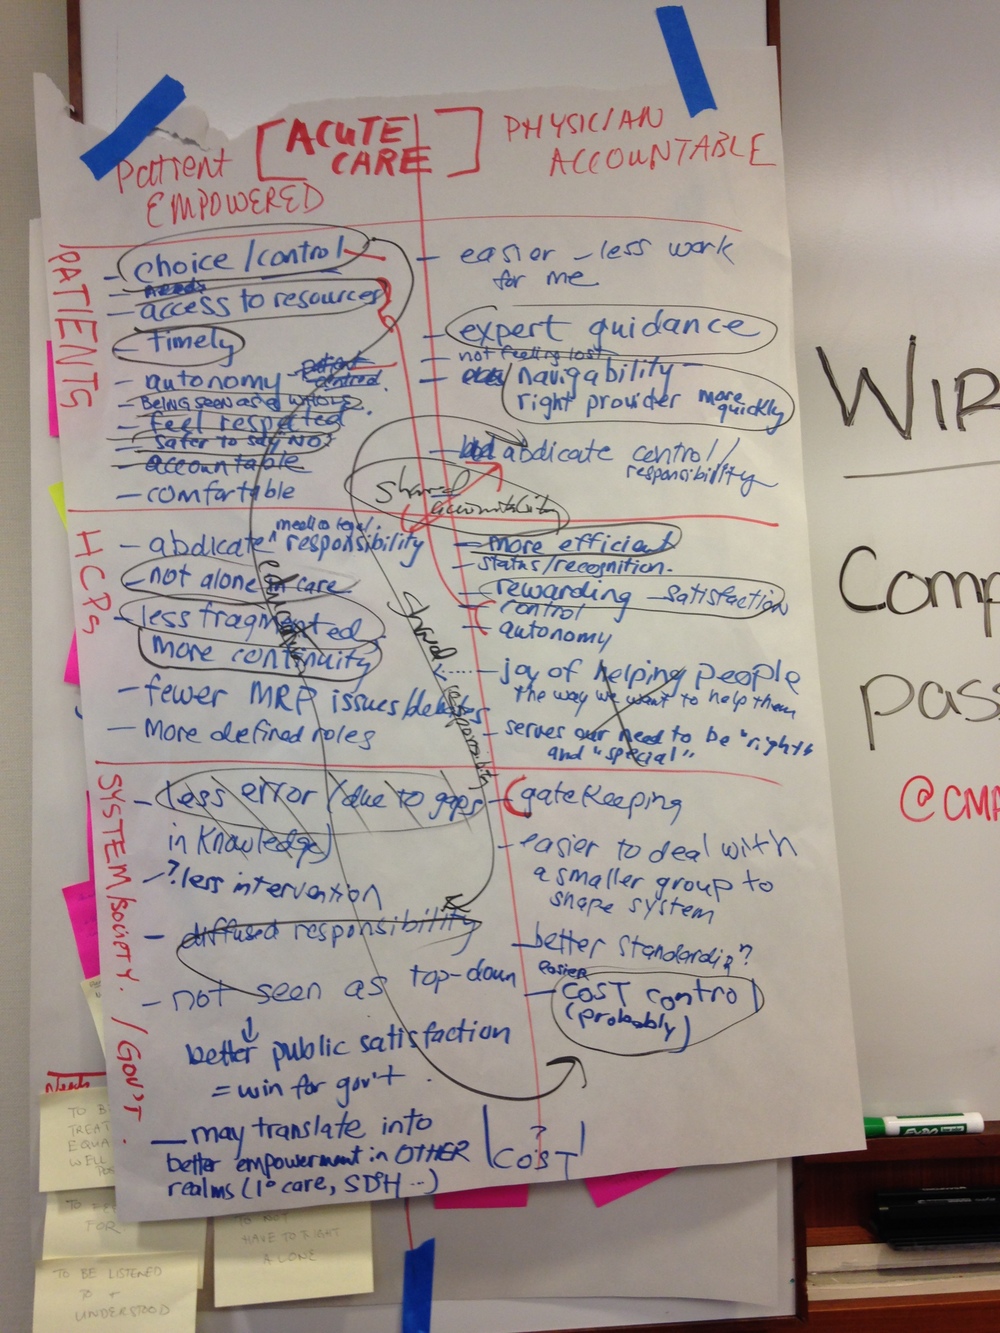 [ACUTE CARE]
Patient EMPOWERED
PHYSICIAN ACCOUNTABLE
PATIENTS
- choice/control
- needs
- access to resources
- timely
- autonomy - patient centred.
- BEING SEEN AS A WHOLE
- feel respected
- safer to say NO
- accountable
- comfortable
- easier - less work
for me
- expert guidance
- not feeling lost
- navigability
right provider more quickly
- abdicate control/
responsibility
shared
accountability
HCPs
- abdicate ^ medico legal. responsibility
- not alone in care
- less fragmented
more continuity
- fewer MRP issues/debates
- More defined roles
- more efficient
- status/recognition.
- rewarding - satisfaction
- control
- autonomy
- joy of helping people
the way we want to help them
- serves our need to be "right"
and "special"
shared responsibility
SYSTEM/SOCIETY. /GOV'T.
- less error (due to gaps
in knowledge)
- ? less intervention
- diffused responsibility
- not seen as top-down
↓
better public satisfaction
= win for gov't.
- may translate into
better empowerment in OTHER
realms (1° care, SDH ..)
- gatekeeping
- easier to deal with
a smaller group to
shape system
- better standardiz?
- easier
COST control
(probably)
?
COST
Needs
TO BE LISTENED
TO +
UNDERSTOOD
TO NOT
HAVE TO FIGHT
ALONE
WIR
Comp
pass
@CMA
EXPO